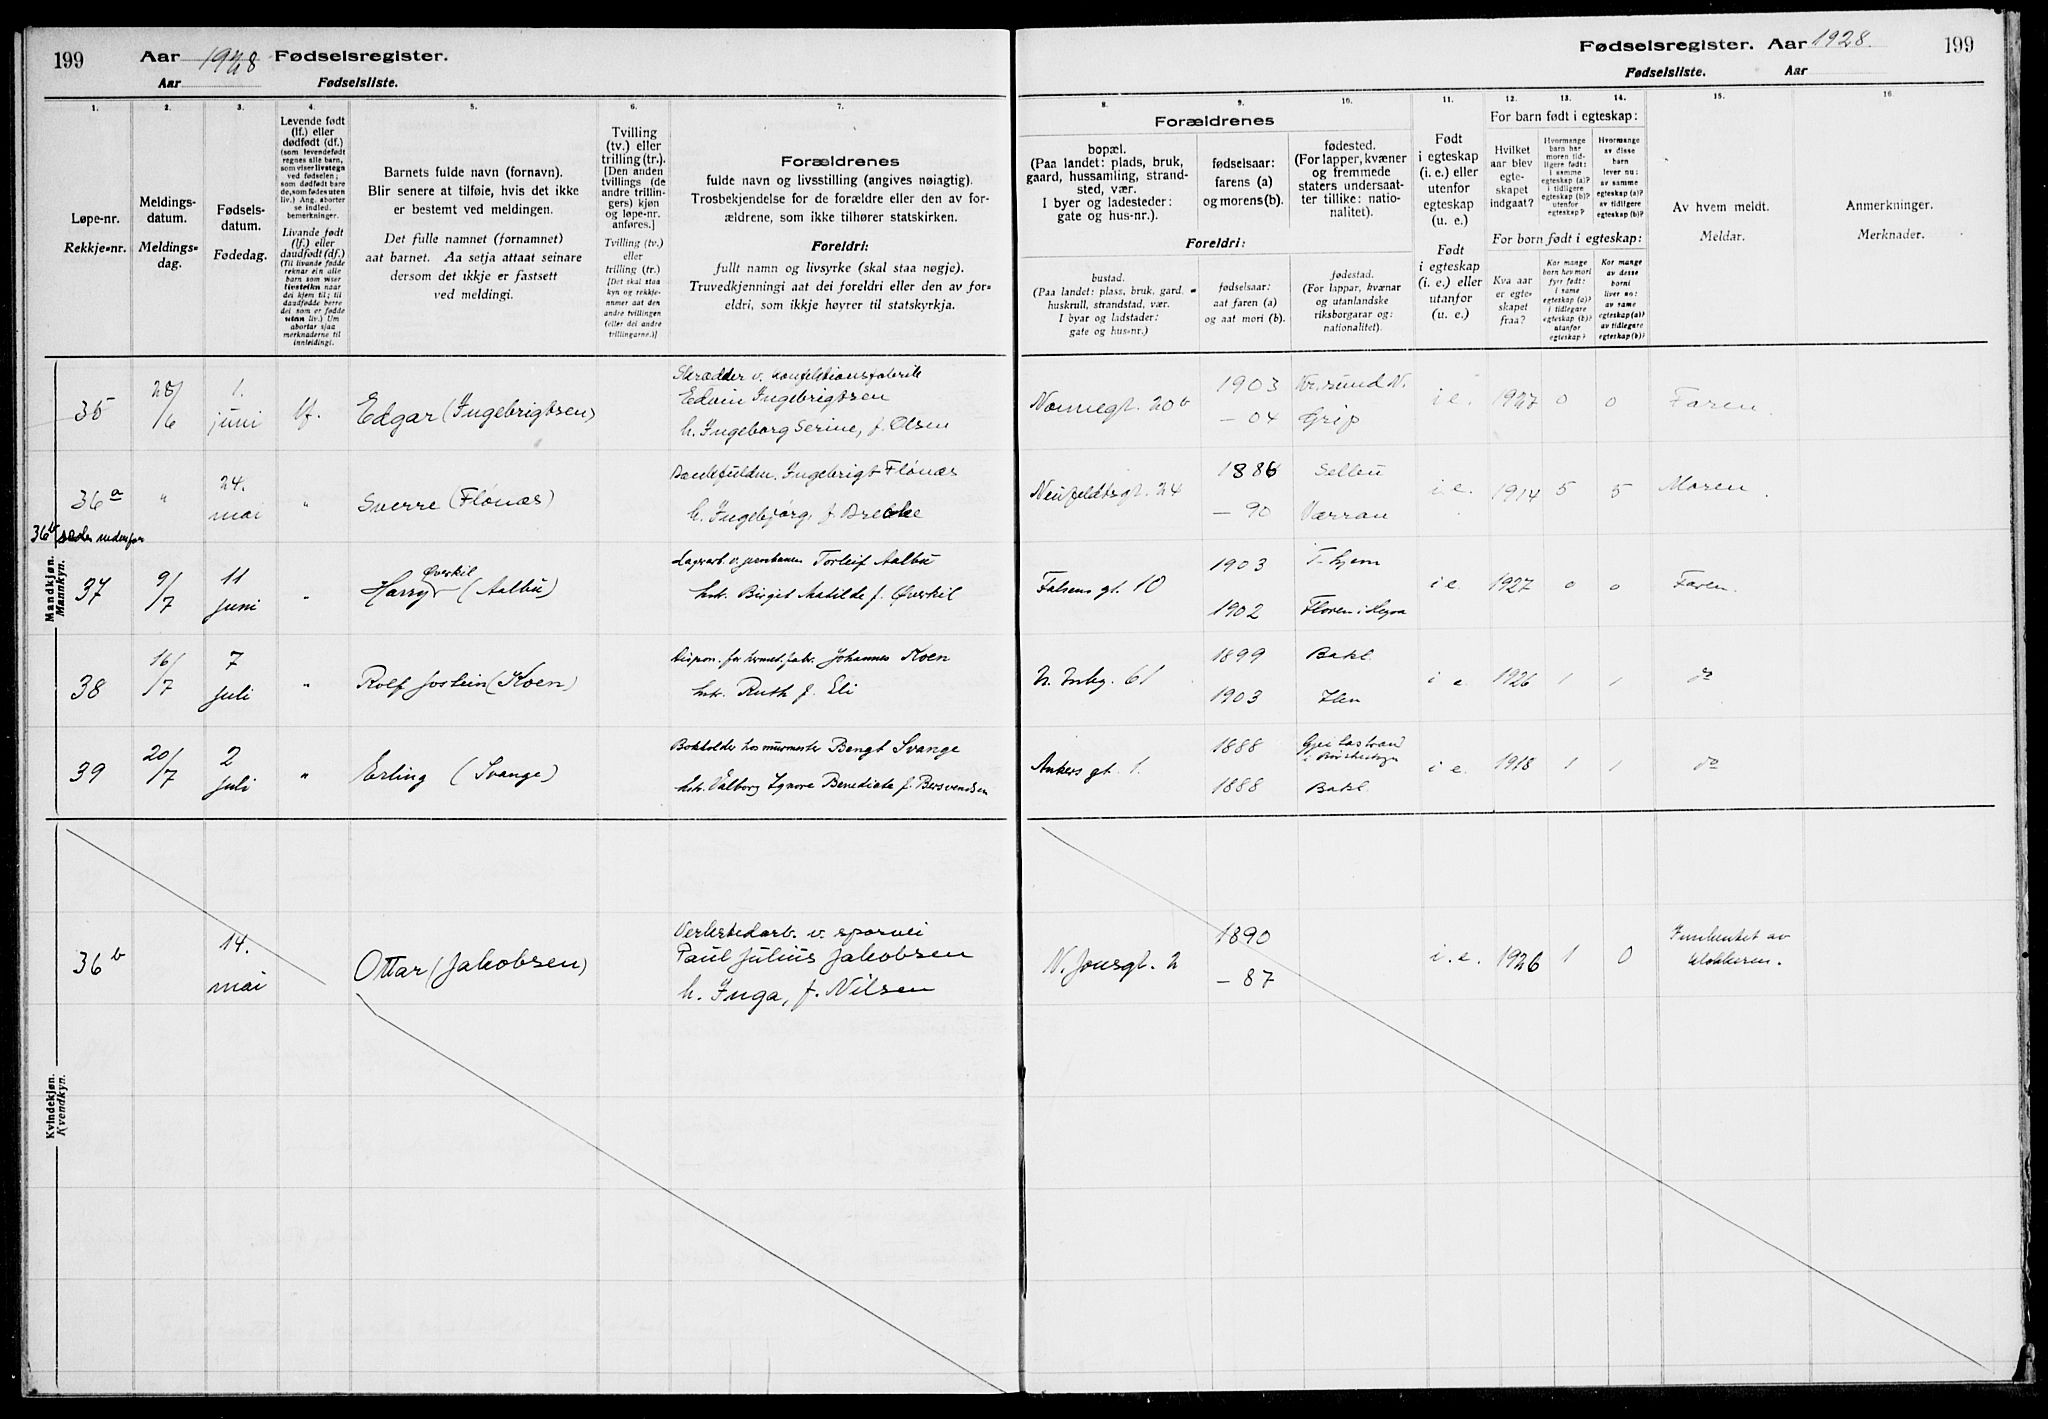 199 Aar 1928 Fødselsregister.
Aar Fødselsliste.
Fødselsregister. Aar 1928. 199
Fødselsliste. Aar
1.
Løpe-nr.
Rekkje-nr.
2.
Meldings-
datum.
Meldings-
dag.
3.
Fødsels-
datum.
Fødedag.
4.
Levende født
(lf.) eller
dødfødt (df.)
(som levendefødt
regnes alle barn,
som viser livstegn
ved fødselen;
som dødfødt bare
de, som fødes uten
liv.) Ang. aborter
se indled.
bemerkninger.
Livande født
(lf.) eller
daudfødt (df.)
(Til livande fødde
reknar ein alle
barn som viser
livsteikn naar
dei kjem til; til
daudfødde berre
dei som er fødde
utan liv.) Um
abortar sjaa
merknaderne til
innleidingi.
5.
Barnets fulde navn (fornavn).
Blir senere at tilføie, hvis det ikke
er bestemt ved meldingen.
Det fulle namnet (fornamnet)
aat barnet. Aa setja attaat seinare
dersom det ikkje er fastsett
ved meldingi.
6.
Tvilling
(tv.) eller
trilling (tr.).
[Den anden
tvillings (de
andre trillin-
gers) kjøn
og løpe-nr.
anføres.]
Tvilling (tv.)
eller
trilling (tr.)
[Det skal staa
kyn og rekkje-
nummer aat den
andre tvillingen
(eller dei andre
trillingarne.)]
7.
Forældrenes
fulde navn og livsstilling (angives nøiagtig).
Trosbekjendelse for de forældre eller den av for-
ældrene, som ikke tilhører statskirken.
Foreldri:
fullt namn og livsyrke (skal staa nøgje).
Truvedkjenningi aat dei foreldri eller den av for-
eldri, som ikkje høyrer til statskyrkja.
Forældrenes
8.
bopæl.
(Paa landet: plads, bruk,
gaard, hussamling, strand-
sted, vær.
I byer og ladesteder:
gate og hus-nr.).
9.
fødselsaar:
farens (a)
og morens (b).
10.
fødested.
(For lapper, kvæner
og fremmede
staters undersaat-
ter tillike: natio-
nalitet).
Foreldri:
bustad.
(Paa landet: plass, bruk, gard.
huskrull, strandstad, vær.
I byar og ladstader:
gate og hus-nr.)
fødselsaar:
aat faren (a)
og aat mori (b).
fødestad.
(For lappar, kvænar
og utanlandske
riksborgarar og:
nationalitet).
11.
Født
i egteskap
(i. e.) eller
utenfor
egteskap
(u. e.)
Født
i egteskap
(i. e.) eller
utanfor
(u. e.)
12. 13. 14.
For barn født i egteskap:
Hvilket
aar blev
egte-
skapet
indgaat?
Hvormange
barn har
moren tid-
ligere født:
i samme
egteskap (a)?
i tidligere
egteskap (b)?
utenfor
egteskap?
Hvormange
av disse
barn
lever nu:
av samme
egteskap (a)?
av tidligere
egteskap (b)?
For born født i egteskap:
Kva aar
er egte-
skapet
fraa?
Kor mange
born hev mori
fyrr født:
i same
egteskap (a)?
i tidlegare
egteskap (b)?
utanfor
egteskap?
Kor mange
av desse
borni
liver no:
av same
egteskap (a)?
av tidlegare
egteskap (b)?
15.
Av hvem meldt.
Meldar.
16.
Anmerkninger.
Merknader.
Mandkjøn.
Mannkyn.
35 28/6 1. juni lf. Edgar (Ingebrigtsen)
Skrædder v. konfektionsfabrik
Edvin Ingebrigtsen
h. Ingeborg Serine, f. Olsen
Nonnegt. 20b 1903 Kr.sund N. i e. 1927 0 0 Faren.
– 04 Grip
36a " 24. mai " Sverre (Flönæs)
Ingebrigt Flönæs
h. Ingebjörg, f. Brekke
Neufeldtsgt. 24 1886 Selbu i. e. 1914 5 5 Moren.
– 90 Værran
36b nedenfor
37 9/7 11 juni " Harry Øverkil (Aalbu)
Torleif Aalbu
hstr. Birgit Matilde f. Øverkil
Falsens gt. 10 1903 T.hjem i e. 1927 0 0 Faren.
1902 Floren i Hegra
38 16/7 7 juli " Rolf Jostein (Koen)
Dispon. for Johannes Koen
hstr. Ruth f. Eli
61 1899 Bakl. i e. 1926 1 1 do
1903 Ilen
39 20/7 2 juli " Erling (Svange)
Bokholder hos murmester Bengt Svange
hstr. Valborg Benedicte f. Bersvendsen
Ankers gt. 1. 1888 i e. 1918 1 1 do
1888 Bakl.
Kvindekjøn.
Kvendkyn.
36b 14. mai Ottar (Jakobsen)
Verkstedarb. v. sporvei
Paul Julius Jakobsen
h. Inga, f. Nilsen
N. Jonsgt. 2 1890 i. e. 1926 1 0 Innhentet av
– 87 klokkeren.